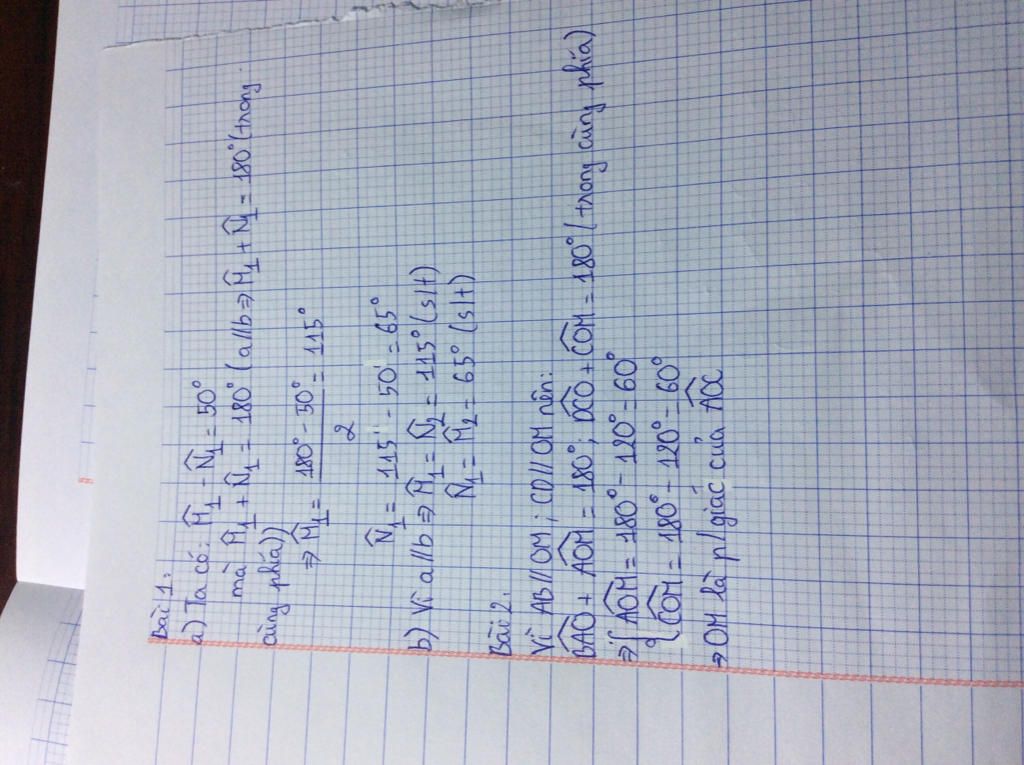 Bài 1:
a) Ta có: M̂₁ - N̂₁ = 50°
mà M̂₁ + N̂₁ = 180° (a//b ⇒ M̂₁ + N̂₁ = 180° (trong
cùng phía))
⇒ M̂₁ = (180° - 50°)/2 = 115°
N̂₁ = 115° - 50° = 65°
b) Vì a//b ⇒ M̂₁ = N̂₂ = 115° (slt)
N̂₁ = M̂₂ = 65° (slt)
Bài 2:
Vì AB//OM; CD//OM nên:
BAO + AOM = 180°; DCO + COM = 180° (trong cùng phía)
⇒ { AOM = 180° - 120° = 60°
{ COM = 180° - 120° = 60°
⇒ OM là p/giác của AOC